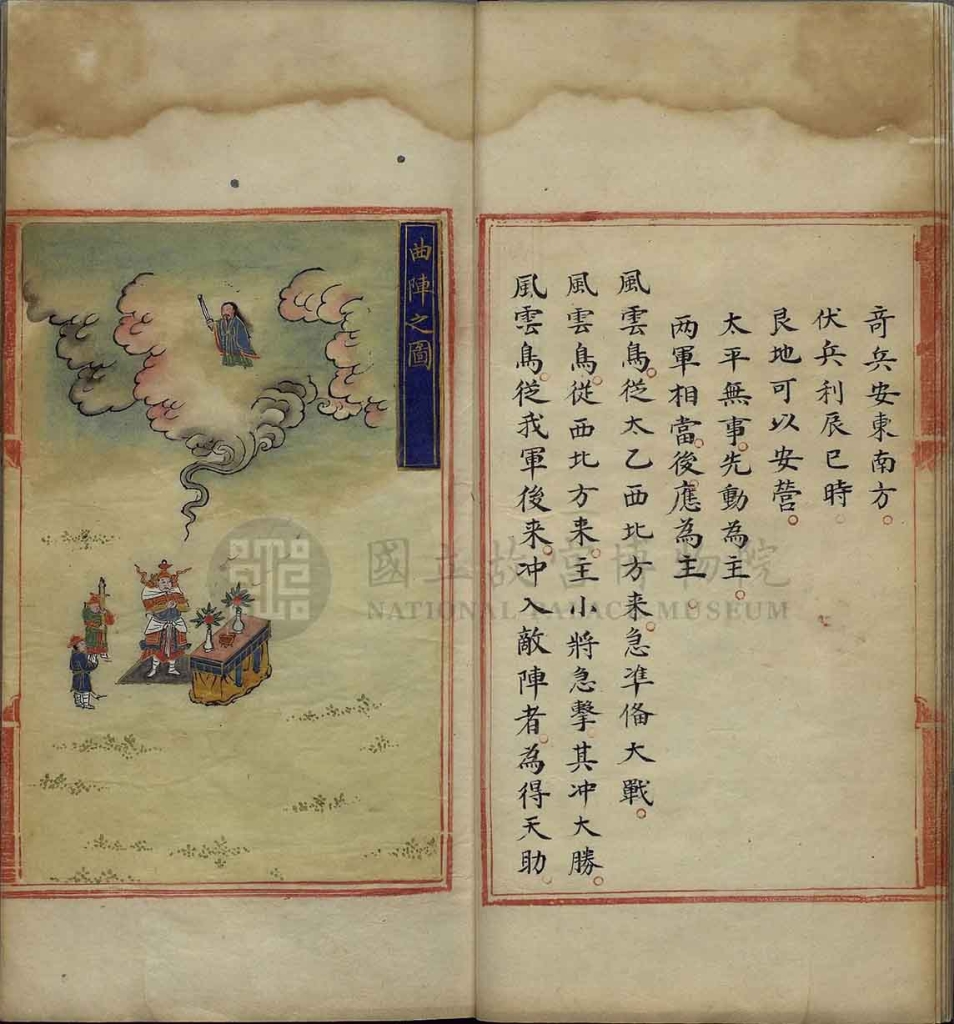 奇兵安東南方
伏兵利辰巳時
艮地可以安營
太平無事先動為主
两軍相當後應為主
風雲鳥從太乙西北方来急准俻大戰
風雲鳥從西北方来主小將急擊其冲大勝
風雲鳥從我軍後来冲入敵陣者為得天助
曲陣之圖
國立故宮博物院
NATIONAL PALACE MUSEUM